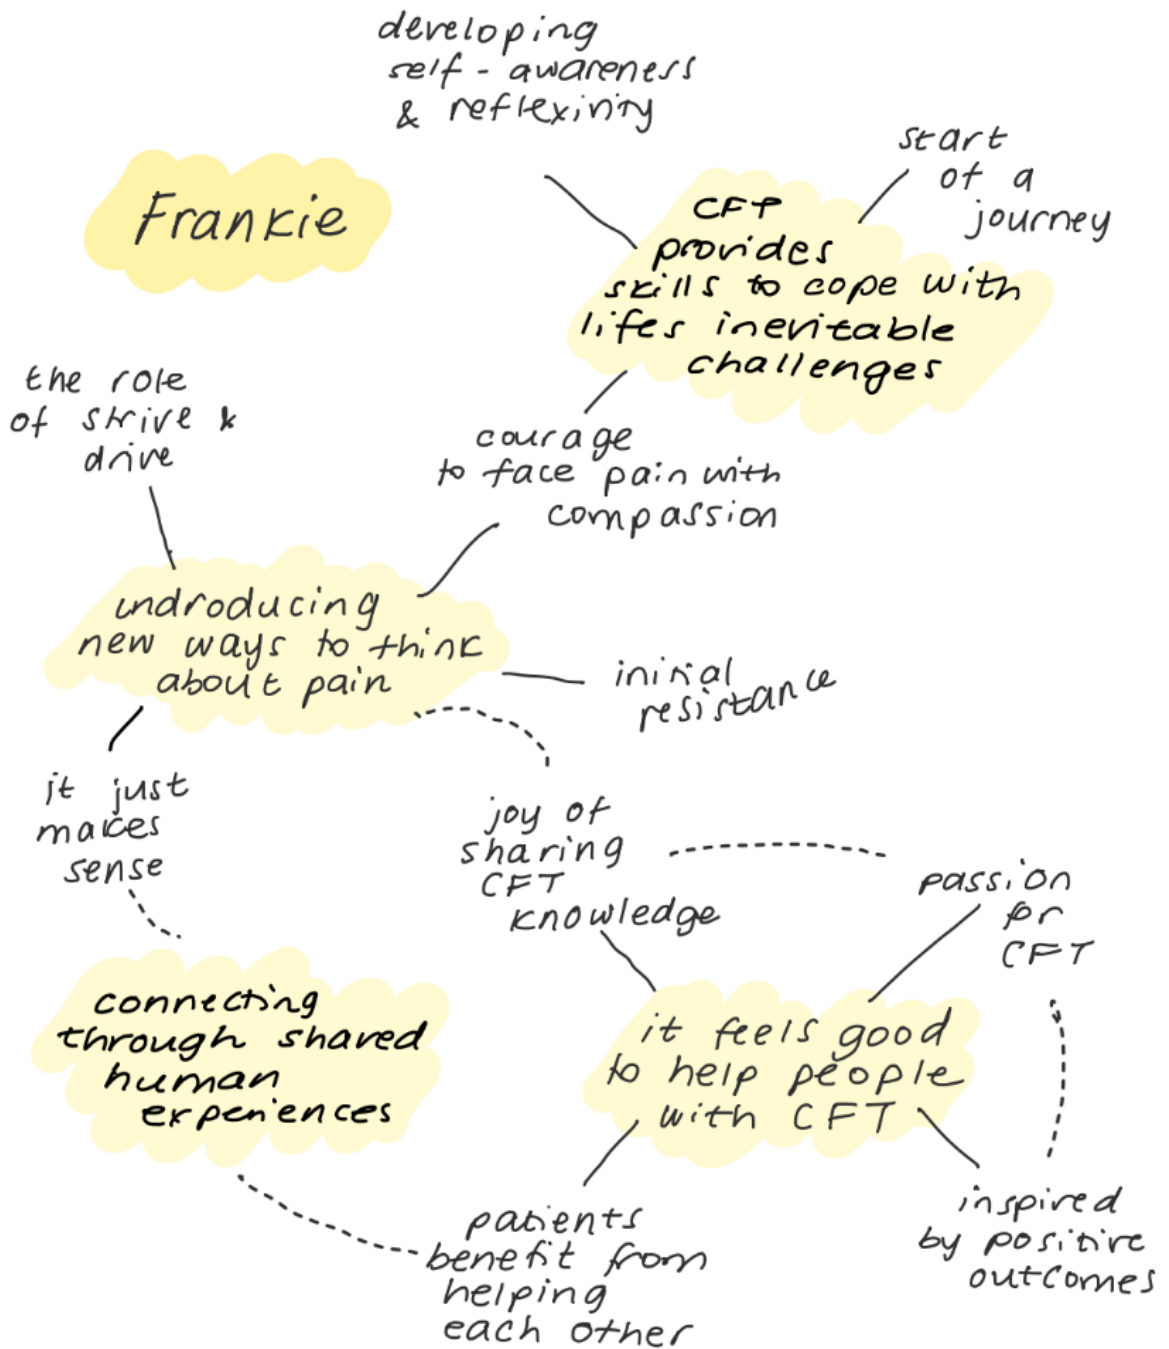 developing
self - awareness
& reflexivity
start
of a
journey
Frankie
CFT
provides
skills to cope with
lifes inevitable
challenges
the role
of strive &
drive
courage
to face pain with
compassion
undroducing
new ways to think
about pain
initial
resistance
it just
makes
sense
joy of
sharing
CFT
knowledge
passion
for
CFT
connecting
through shared
human
experiences
it feels good
to help people
with CFT
patients
benefit from
helping
each other
inspired
by positive
outcomes